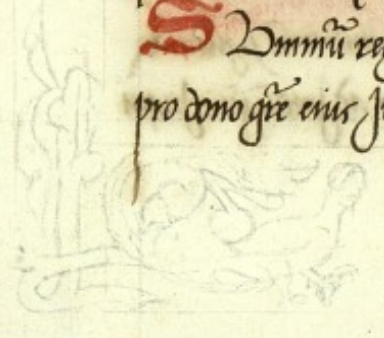 Summū reg
pro dono gr̄e eius J